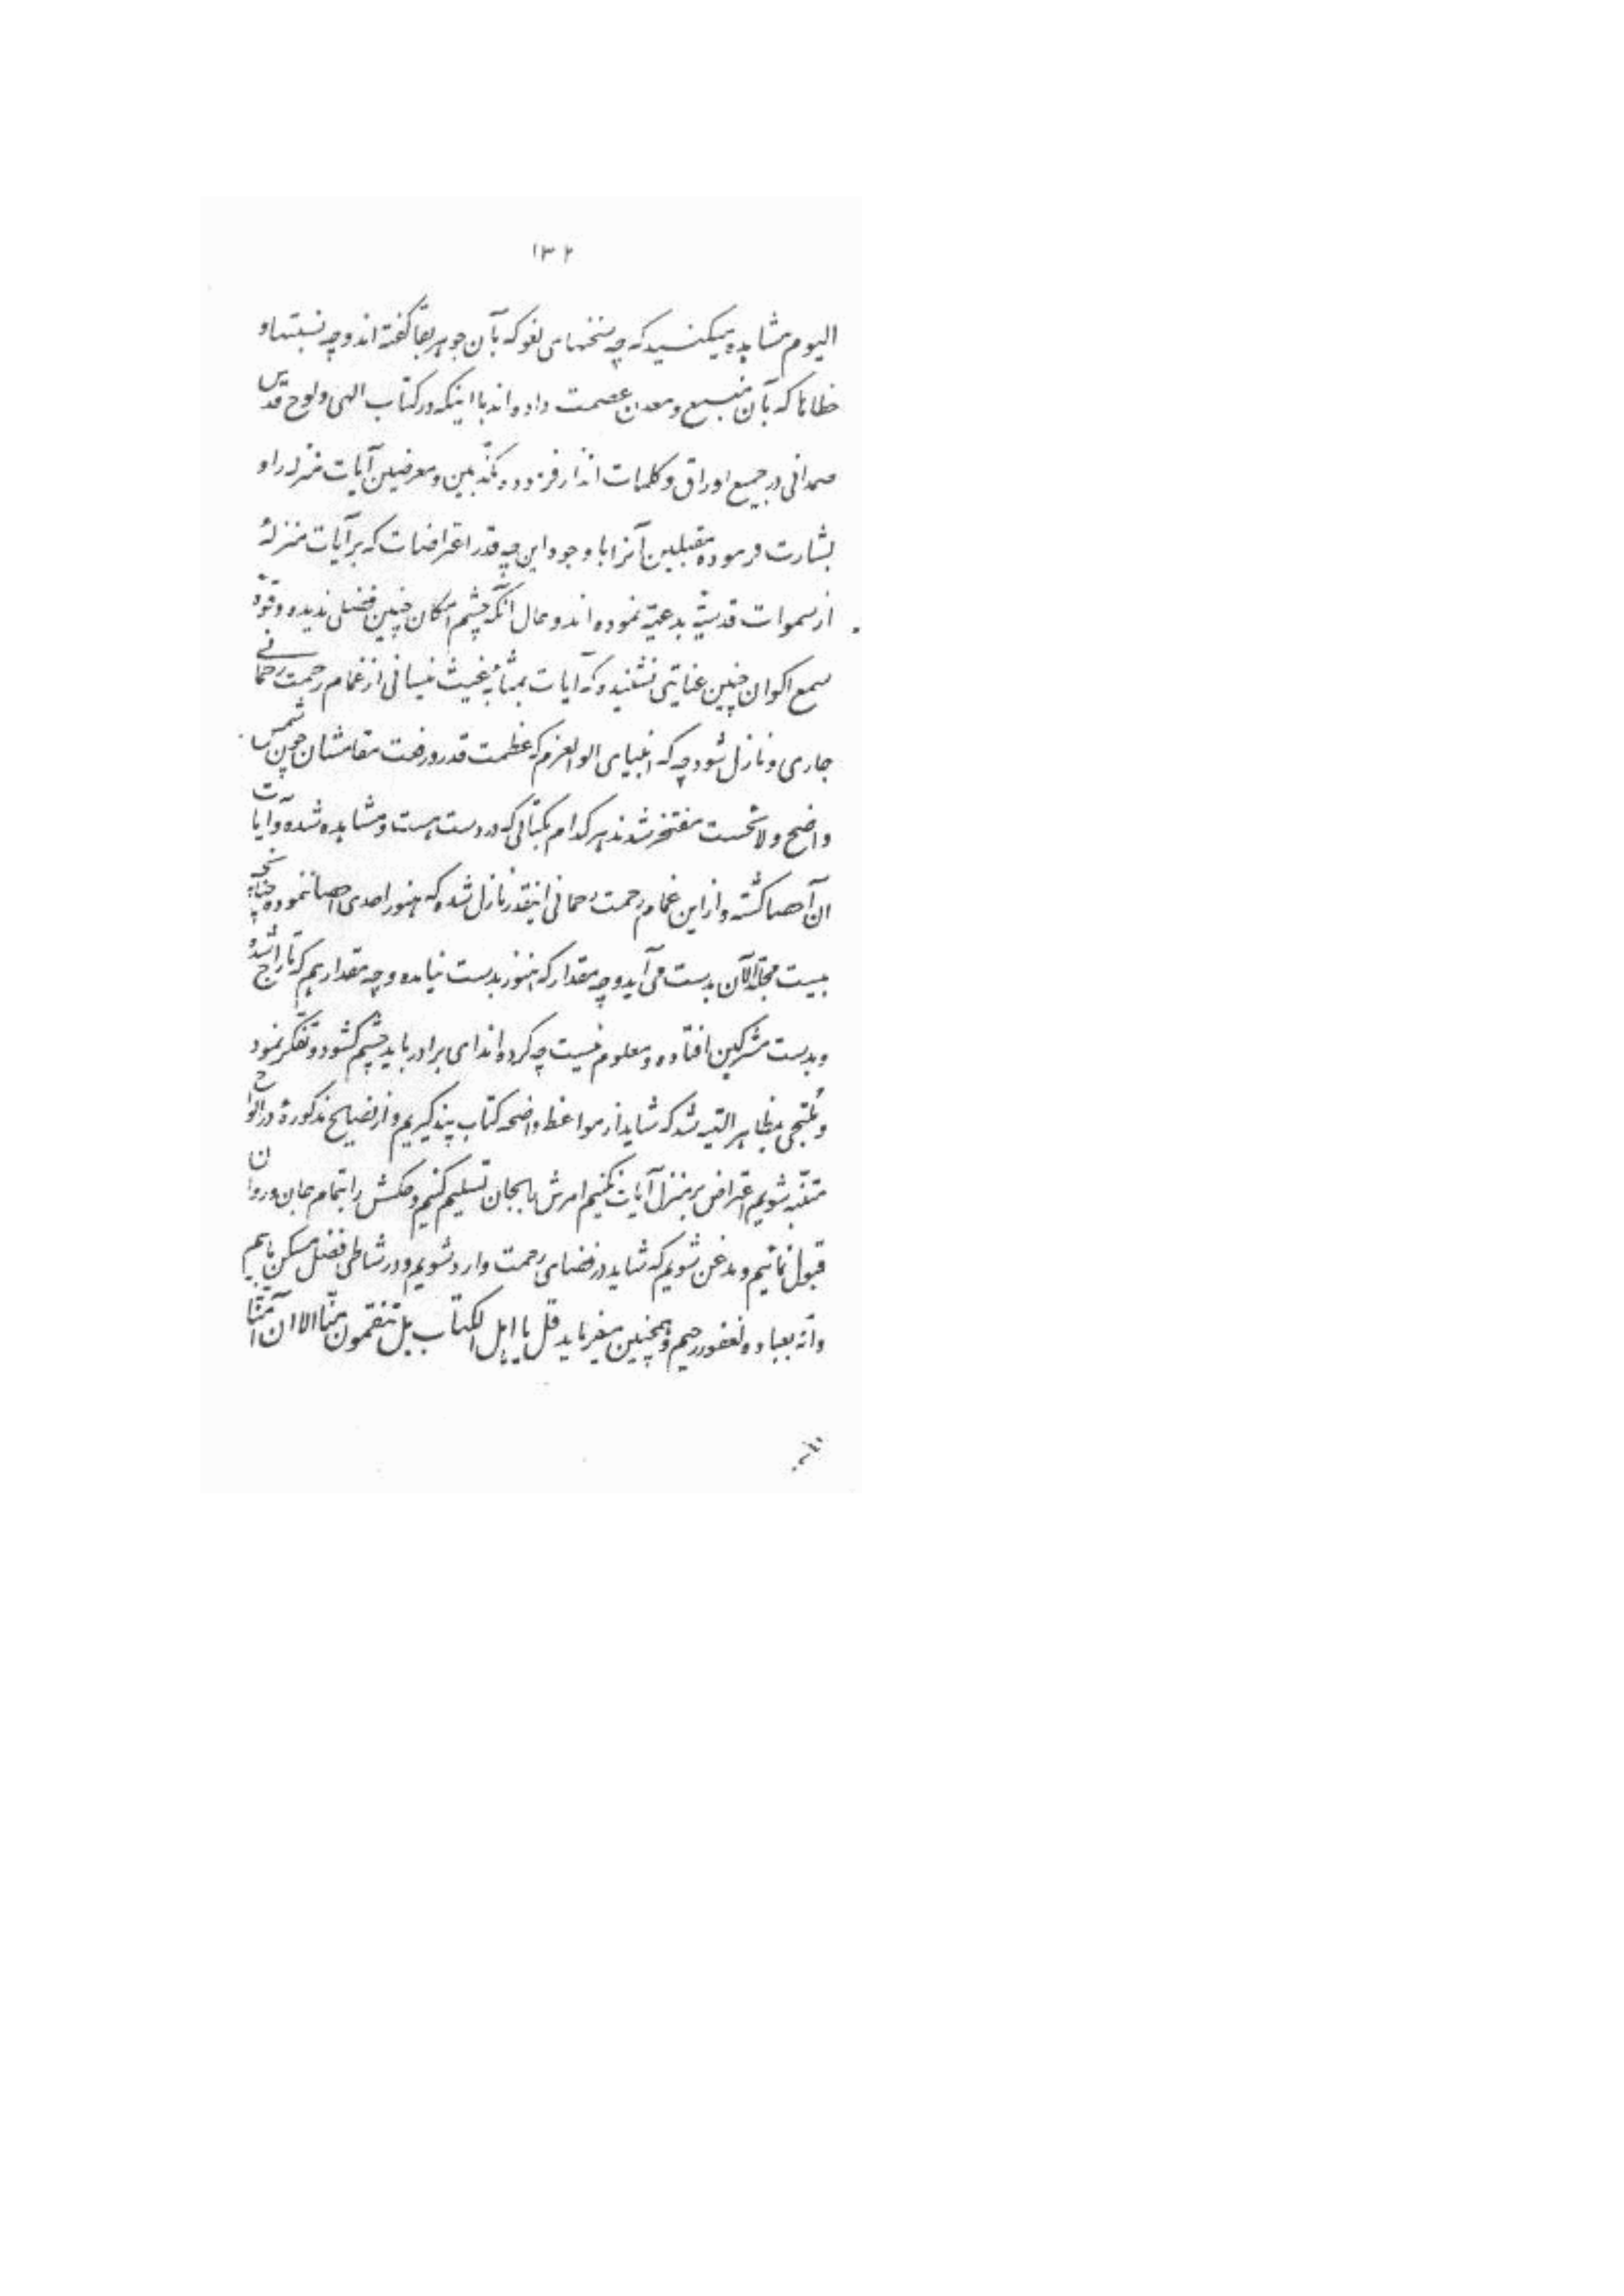 ۱۳۲
اليوم مشاهده ميكنيد كه چه سخنهاى لغو كه بآن جوهر بقا گفته اند و چه نسبتها و
خطاها كه بآن منبع و معدن عصمت داده اند با اينكه در كتاب الهى و لوح قدس
صمدانى در جميع اوراق و كلمات انذار فرموده مكذّبين و معرضين آيات منزله را و
بشارت فرموده مقبلين آنرا با وجود اين چه قدر اعتراضات كه بر آيات منزلهٔ
از سموات قدسيّهٔ بدعيّه نموده اند و حال آنكه چشم امكان چنين فضلى نديده و قوّهٔ
سمع اكوان چنين عنايتى نشنيده كه آيات بمثابهٔ غيث نيسانى از غمام رحمت رحمانى
جارى و نازل شود چه كه انبياى اولو العزم كه عظمت قدر و رفعت مقامشان چون شمس
واضح و لائحست مفتخر شدند هر كدام بكتابى كه در دست هست و مشاهده شده و آيات
آن احصا گشته و از اين غمام رحمت رحمانى اينقدر نازل شده كه هنوز احدى احصا ننموده چنانچه
بيست مجلّد الآن بدست مى آيد و چه مقدار كه هنوز بدست نيامده و چه مقدار هم كه تاراج شده
و بدست مشركين افتاده و معلوم نيست چه كرده اند اى برادر بايد چشم گشود و تفكّر نمود
و ملتجى بمظاهر الهيّه شد كه شايد از مواعظ واضحه كتاب پند گيريم و از نصايح مذكورهٔ در الواح
متنبّه شويم اعتراض بر منزل آيات نكنيم امرش را بجان تسليم كنيم و حكمش را بتمام جان و روان
قبول نمائيم و مذعن شويم كه شايد در فضاى رحمت وارد شويم و در شاطى فضل مسكن يابيم
و انّه بعباده لغفور رحيم و همچنين ميفرمايد قل يا اهل الكتاب هل تنقمون منّا الا ان آمنّا